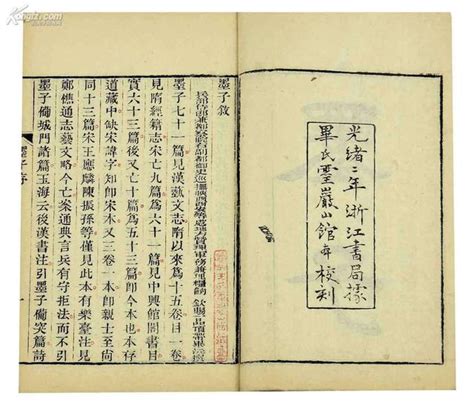 光緒二年浙江書局據
畢氏靈巖山館本校刻
墨子敘
墨子七十一篇見漢藝文志隋以來為十五卷目一卷
見隋經籍志宋亡九篇為六十一篇見中興館閣書目
實六十三篇後又亡十篇為五十三篇即今本也本存
道藏中缺宋諱字知即宋本又三卷一本即親士至尚
同十三篇宋王應麟陳振孫等僅見此本有樂臺注見
鄭樵通志藝文略今亡案通典言兵有守拒法而不引
墨子備城門諸篇玉海云後漢書注引墨子備突篇詩
墨子序